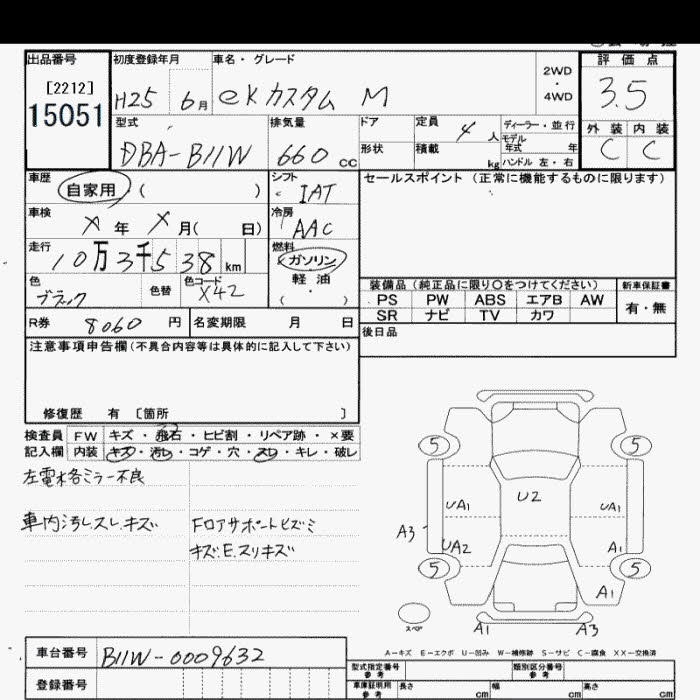 出品番号 初度登録年月 車名・グレード 評価点
[2212] 2WD
15051 H25 6月 eKカスタム M ・ 3.5
4WD
型式 排気量 ドア 定員 4人 ディーラー・並行 外装 内装
DBA-B11W 660cc 形状 積載 kg モデル年式 年 C C
ハンドル 左・右
車歴 自家用 ( ) シフト IAT セールスポイント (正常に機能するものに限ります)
車検 X年 X月( 日) 冷房 AAC
走行 10万3千538km 燃料 ガソリン
軽油
( ・ )
色 ブラック 色替 色コード X42
装備品 (純正品に限り○をつけてください) 新車保証書
PS PW ABS エアB AW 有・無
SR ナビ TV カワ
R券 8060円 名変期限 月 日 後日品
注意事項申告欄(不具合内容等は具体的に記入して下さい)
修復歴 有 〔箇所 〕
検査員 FW キズ・飛石・ヒビ割・リペア跡・×要
記入欄 内装 キズ・汚レ・コゲ・穴・スレ・キレ・破レ
左電格ミラー不良
車内汚レスレ.キズ Fロアサポートヒズミ
キズ.E.スリキズ
5 5
UA1 U2 UA1
A3 UA2 A1
5 5
A1
スペア A1 A3
A-キズ E-エクボ U-凹み W-補修跡 S-サビ C-腐食 XX-交換済
車台番号 B11W-0009632
登録番号
型式指定番号 参考 類別区分番号 参考
車庫証明用 参考 長さ cm 幅 cm 高さ cm